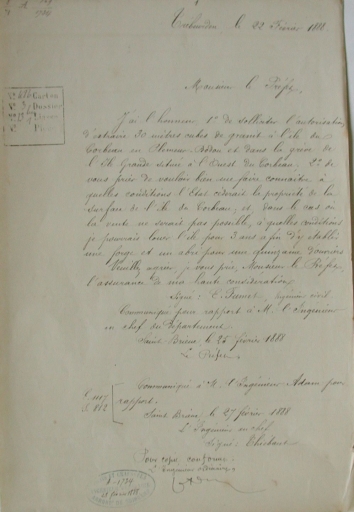 le 22 Février 1888
Monsieur le Préfet,
J'ai l'honneur 1° de solliciter l'autorisation
d'extraire 30 mètres cubes de granit à l'île du
Corbeau en Pleumeur-Bodou et dans la grève de
l'Ile Grande située à l'Ouest du Corbeau; 2° de
vous prier de vouloir bien me faire connaître à
quelles conditions l'Etat cèderait la propriété de la
surface de l'île du Corbeau et, dans le cas où
la vente ne serait pas possible, à quelles conditions
je pourrais louer l'île pour 3 ans afin d'y établir
une forge et un abri pour une quinzaine d'ouvriers
Veuillez agréer, je vous prie, Monsieur le Préfet
l'assurance de ma haute considération
Signé: ingénieur civil
Communiqué pour rapport à M. l'Ingénieur
en chef du Département
Saint Brieuc le 25 février 1888
Le Préfet
Communiqué à M. l'Ingénieur Adam pour
rapport.
Saint Brieuc le 27 février 1888
L'Ingénieur en chef
Signé:
Pour copie conforme:
L'Ingénieur ordinaire
Carton
Dossier